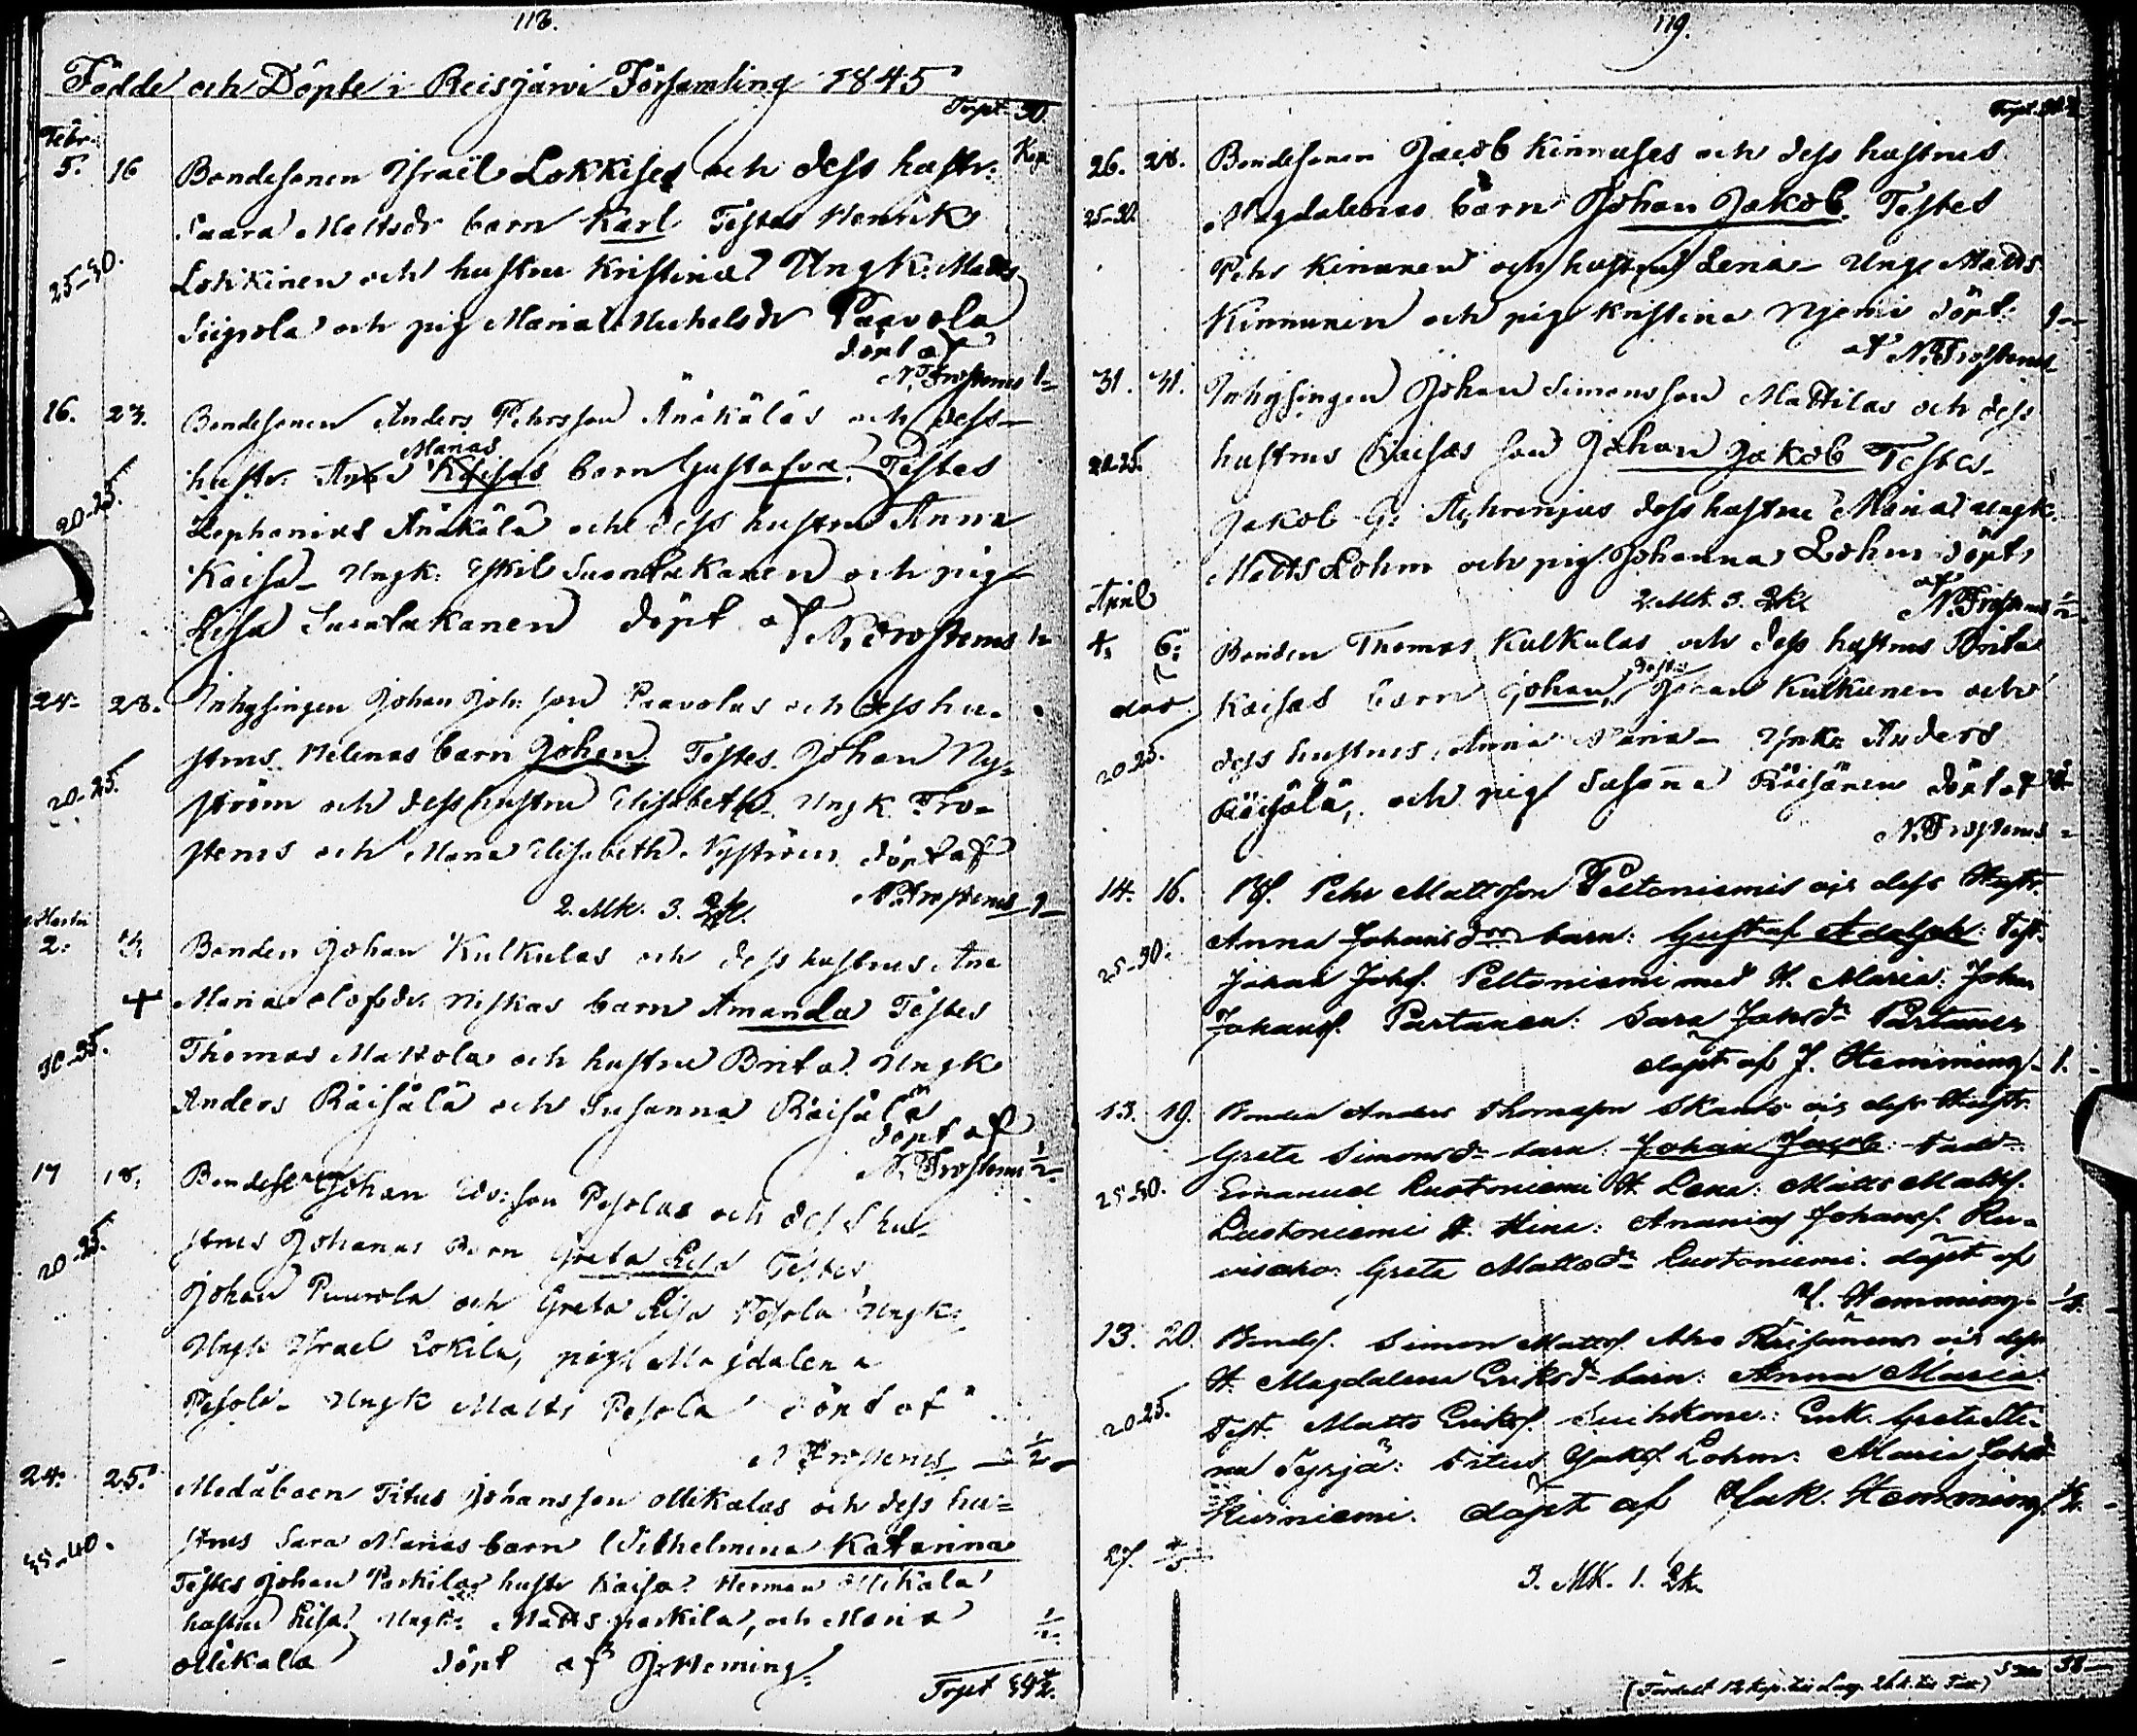 118.
Födde och Döpte i Reisjärvi Församling 1845
Trspt 30.
Febr: Kop:
5. 16 Bondesonen Israël Lokkises och dess hustr:
Saara Mattsdr barn Karl Testes Henrik
25-30. Lokkinen och hustru Kristina Ungk: Matts
och pig Maria Michelsdr Paavola
döpt af
N. Frosterus 1-
16. 23. Bondesonen Anders Pehrsson Änäkäläs och dess
Marias
hustr. barn Gustafva. Testes
20-25. Zephanias Änäkälä och dess hustru Anna
Kaisa- Ungk: Eskil Suontakanen och pig
Lisa Suontakanen döpt af N. Frosterus
24. 28. Inhysingen Johan Joh: son Paavolas och dess hu-
strus Helenas barn Johan Testes. Johan Ny-
20-25. ström och dess hustru Elisabeth. Ungk. Fro-
sterus och Maria Elisabeth Nyström döpt af
2. Mk. 3. Qk. N. Frosterus 1-
Martii
2. Bonden Johan Kulkulas och dess hustrus Ana
+ Maria Olofsdr Niskas barn Amanda Testes
30-35. Thomas Mattola och hustru Brita. Ungk
Anders Räisälä och Susanna Räisälä
döpt af
N. Frosterus 1/2-
17 18. Bondesonen Johan son Pesolas och dess hu-
strus Johanas Barn Greta Lisa Testes
20-25. Johan Puurola och Greta Lisa Pesola Ungk:
Ungk Israel Lokila, pig Magdalena
Pesola- Ungk Matts Pesola döpt af
N Frosterus - 1/2-
24. 25. Medåboen Titus Johansson Ollikalas och dess hu=
strus Sara Marias barn Wilhelmina Katarina
35-40. Testes Johan Parkilas hustr Kaisa. Herman Ollikala
hustru Lisa. Ungk: Matts parkila, och Maria 1/2
Ollikala döpt af J. Heming.
Trspt 34 1/2.
119.
Trspt 34 1/2
26. 28. Bondesonen Jacob Kinnuses och dess hustrus
25-30. Magdalenas barn Johan Jakob. Testes
Pehr Kinnunen och hustru Lena- Ungk Matts
Kinnunen och pig Kristina Njemi döpt 1-
af N. Frosterus
31. 31. Inhysingen Johan Simonsson Mattilas och dess
20-25. hustrus Kaisas son Johan Jakob Testes-
Jakob G: dess hustru Maria ungk.
Matts Lohm och pig. Johanna Lohm döpt
April 2. Mk. 3. Qk. af N. Frosterus 1/2
4. 6. Bonden Thomas Kulkulas och dess hustrus Brita
Test:
Kaisas barn Johan, Johan Kulkunen och
20-25. dess hustrus, Anna Maria- Ynk: Anders
Räisälä, och pig Susana Räisänen döpt af
N. Frosterus -
14. 16. Bs. Pehr Mattsson Peltoniemis och dess Hustr.
25-30. Anna Johans dr barn: Gustaf Adolph: Test.
Johan Johs. Peltoniemi med H. Maria: Johan
Johanss. Partanen: Sara Johsdr Partanen
döpt af J. Hemming. 1. -
13. 19. Bonden Anders Thomasson Skants och dess Hustr.
Greta Simonsdr barn: Johan Jacob:
25-30. Emanuel Lustoniemi H. Lena: Matts Matts.
Lustoniemi H. Stina: Ananias Johanss. Ru-
Greta Mattsdr Lustoniemi: döpt af
J. Hemming. 1/2. -
13. 20. Bonds. Simon Mattss. Räisänens och dess
H. Magdalena Eriksdr barn: Anna Maria
20-25. Test. Matts Erikss. Enk. Greta Sti-
na Syrjä: Titus Jaks. Lohm: Maria
Kurniemi. döpt af Jak. Hemming. 1/2. -
27.
3. MK. 1. Qk.
38-